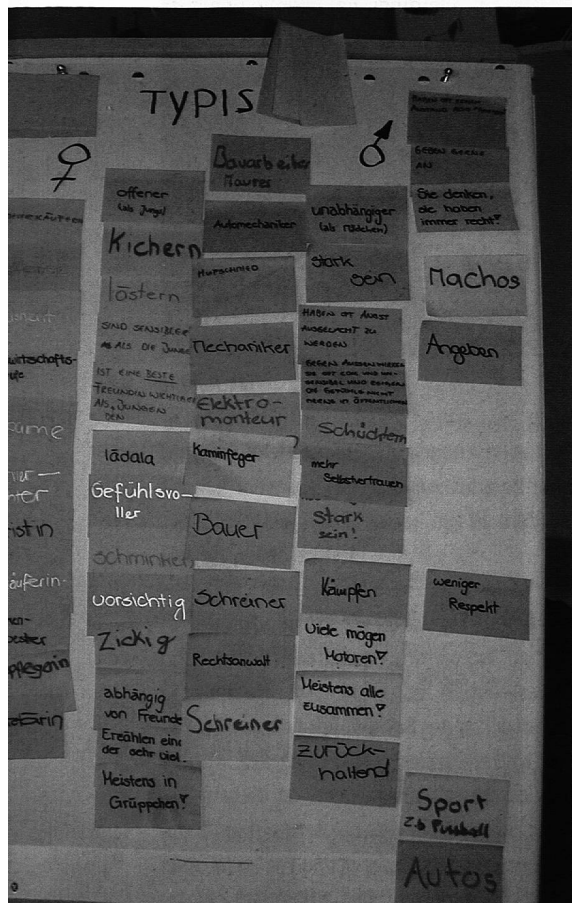 TYPIS
♀
♂
wirtschafts-
istin
äuferin-
pflegerin
offener
(als Jungs)
Kichern
lästern
SIND SENSIBLER
ALS DIE JUNGS
IST EINE BESTE
FREUNDIN WICHTIGER
ALS JUNGEN
lädala
Gefühlsvo-
ller
schminken
vorsichtig
Zickig
abhängig
von Freunde
Erzählen eine
der sehr viel.
Meistens in
Grüppchen!
Bauarbeiter
Maurer
Automechaniker
HUFSCHMID
Mechaniker
Elektro-
monteur
Kaminfeger
Bauer
Schreiner
Rechtsanwalt
Schreiner
unabhängiger
(als Mädchen)
stark
sein
HABEN OFT ANGST
AUSGELACHT ZU
WERDEN
GEGEN AUSSEN WIRKEN
SIE OFT COOL UND UN-
SENSIBEL UND
Schüchtern
mehr
Selbstvertrauen
Stark
sein!
Kämpfen
Viele mögen
Motoren!
Meistens alle
zusammen!
zurück-
haltend
GEBEN GERNE
AN
Sie denken,
sie haben
immer recht!
Machos
Angeben
weniger
Respekt
Sport
z.b Fussball
Autos